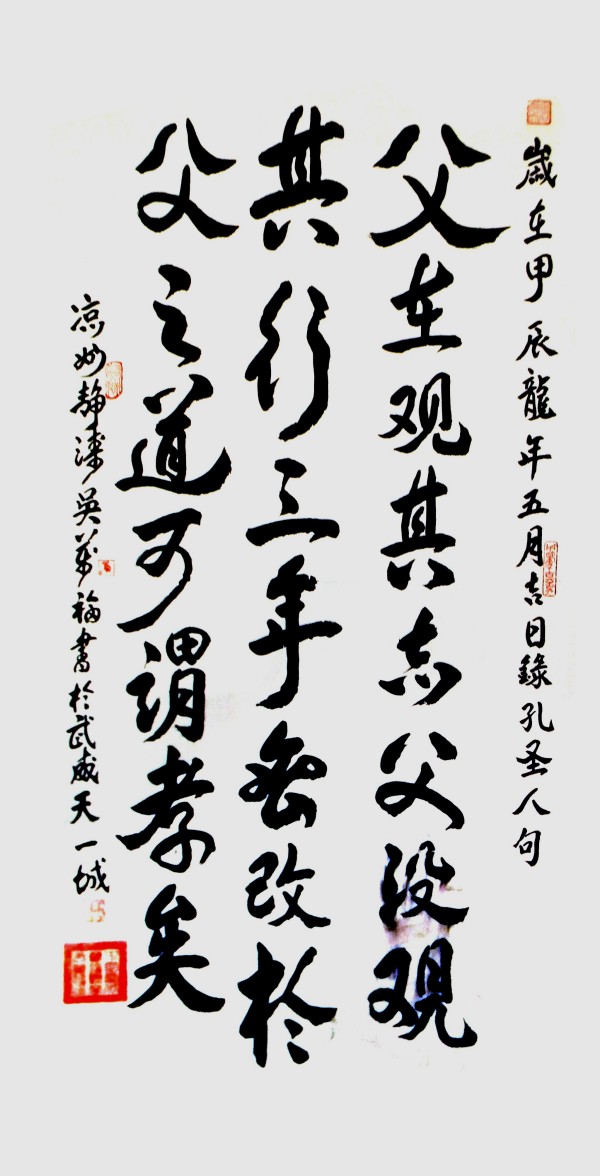 歲在甲辰龍年五月吉日錄孔圣人句
父在观其志父没观
其行三年無改於
父之道可謂孝矣
凉州静吳萬福書於武威天一城